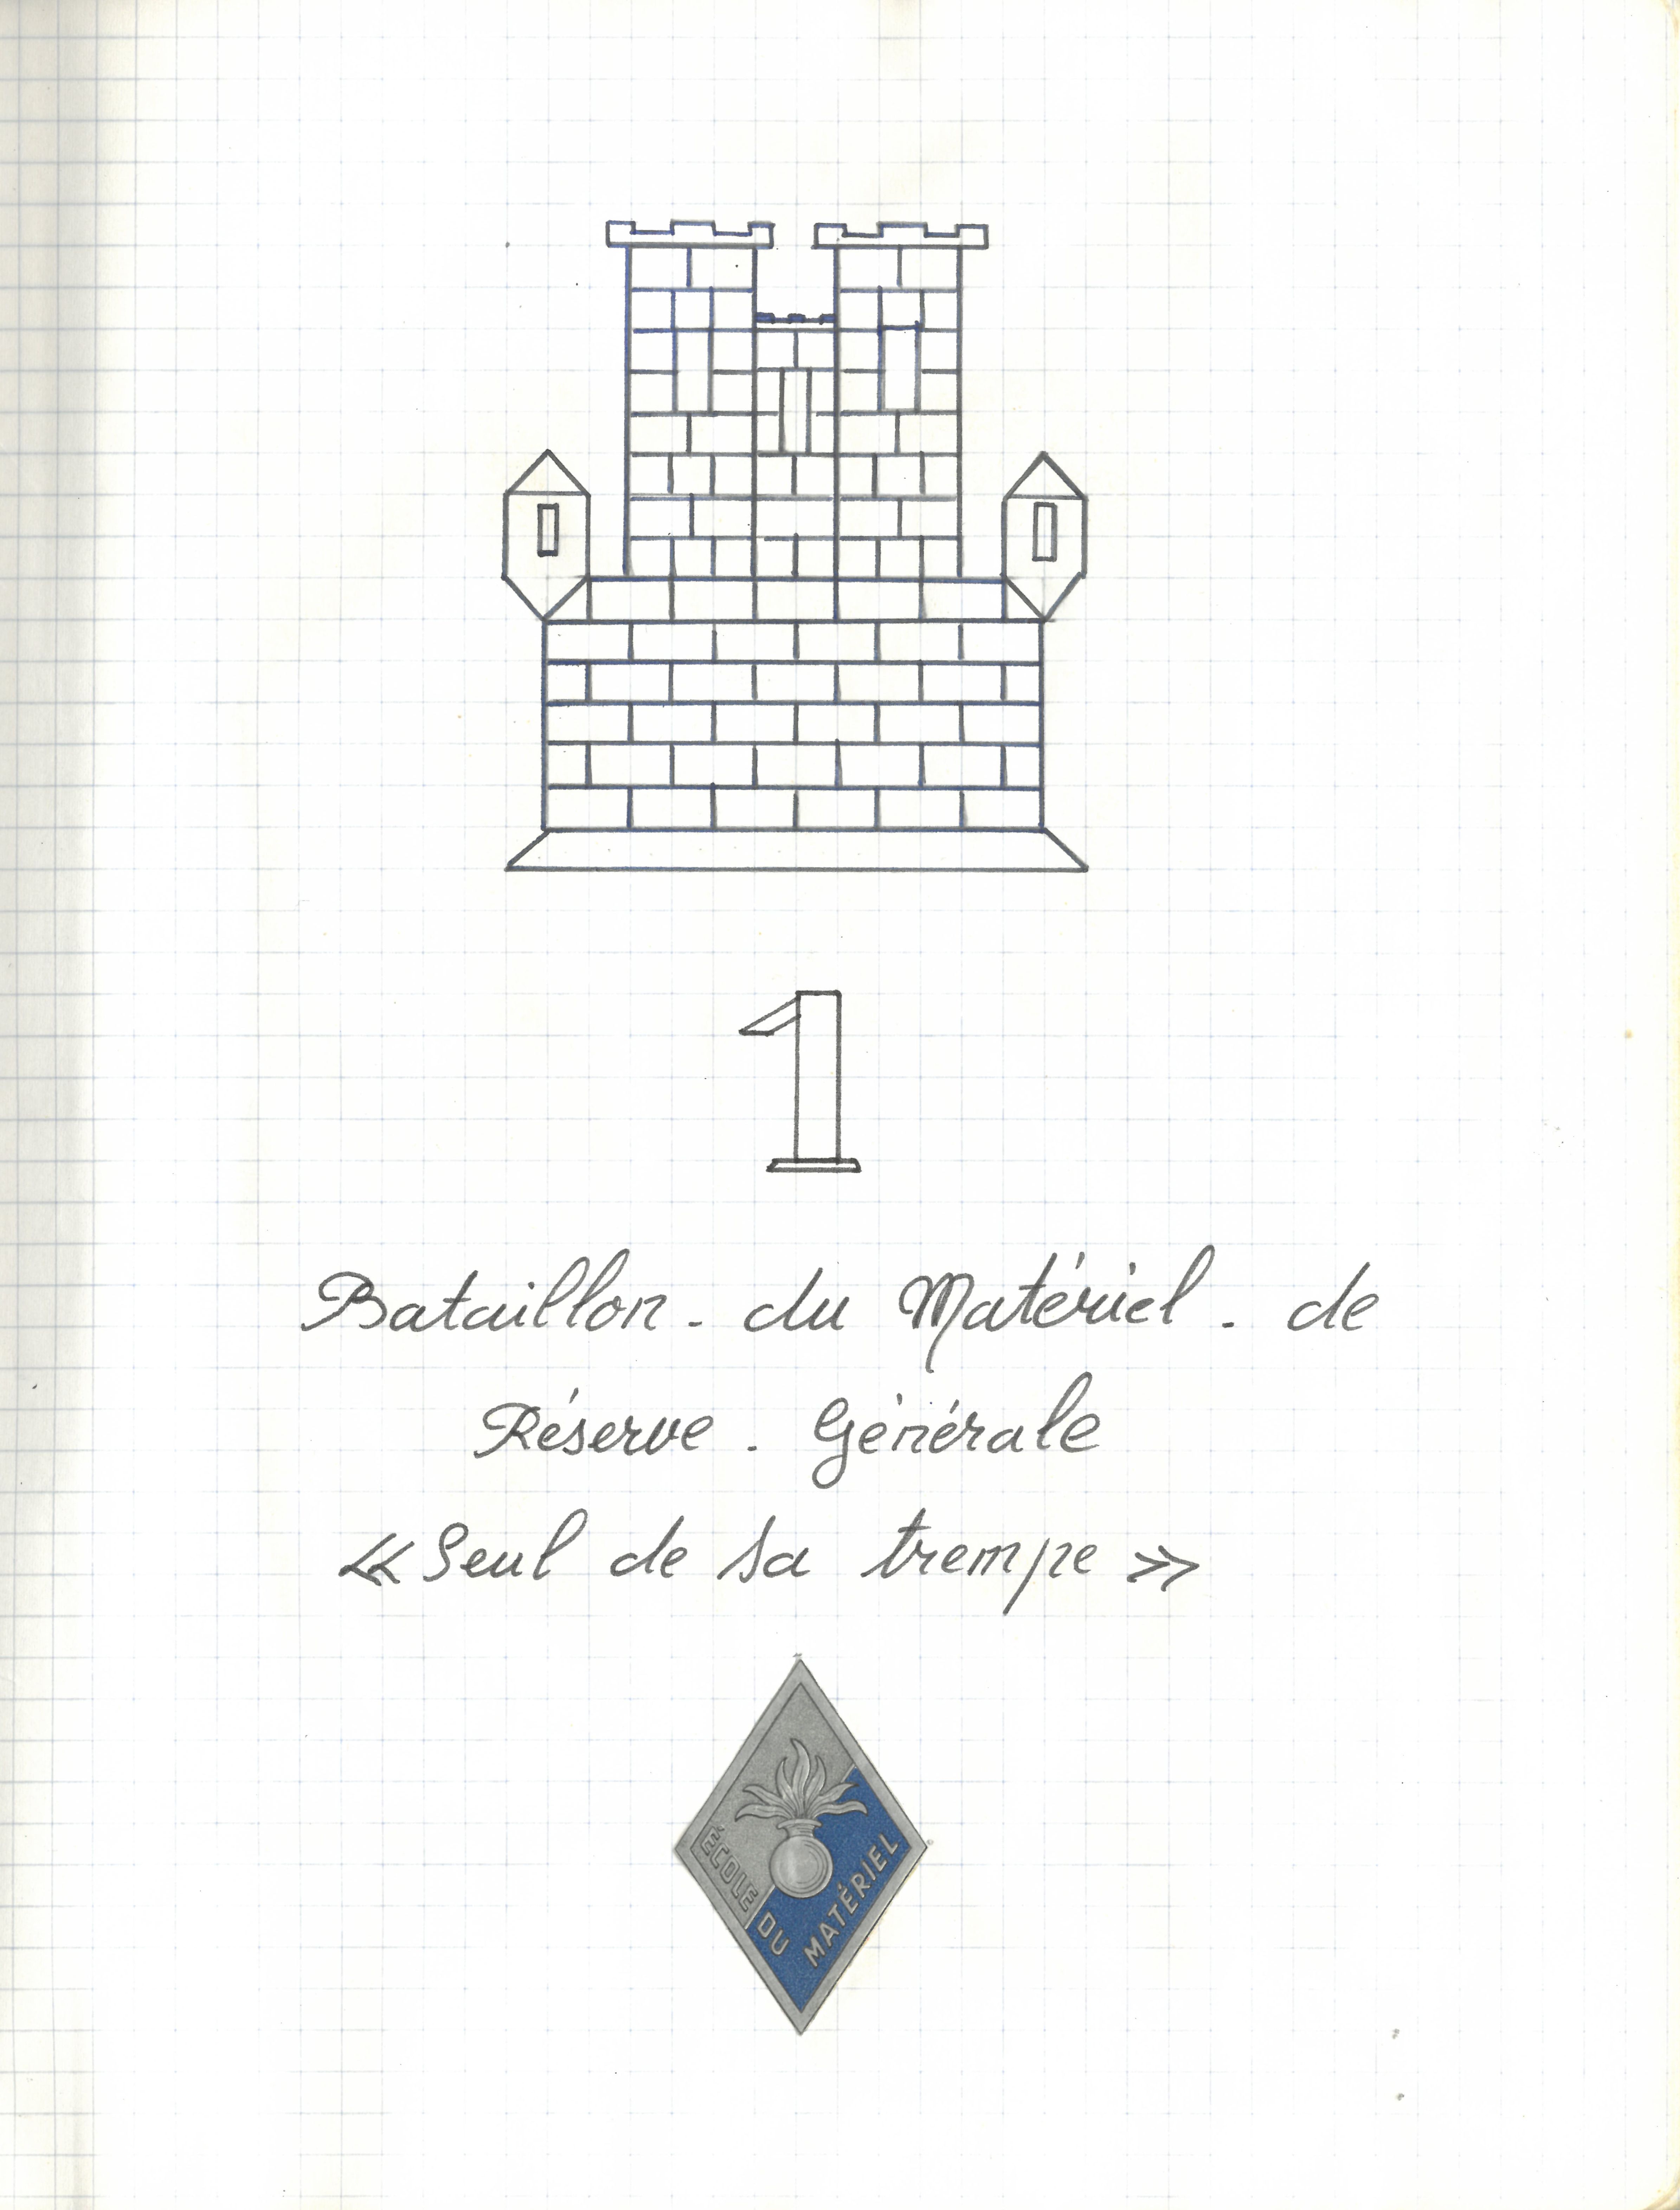 1
Bataillon - du Matériel - de
Réserve - Générale
« Seul de sa trempe »
ÉCOLE DU MATÉRIEL